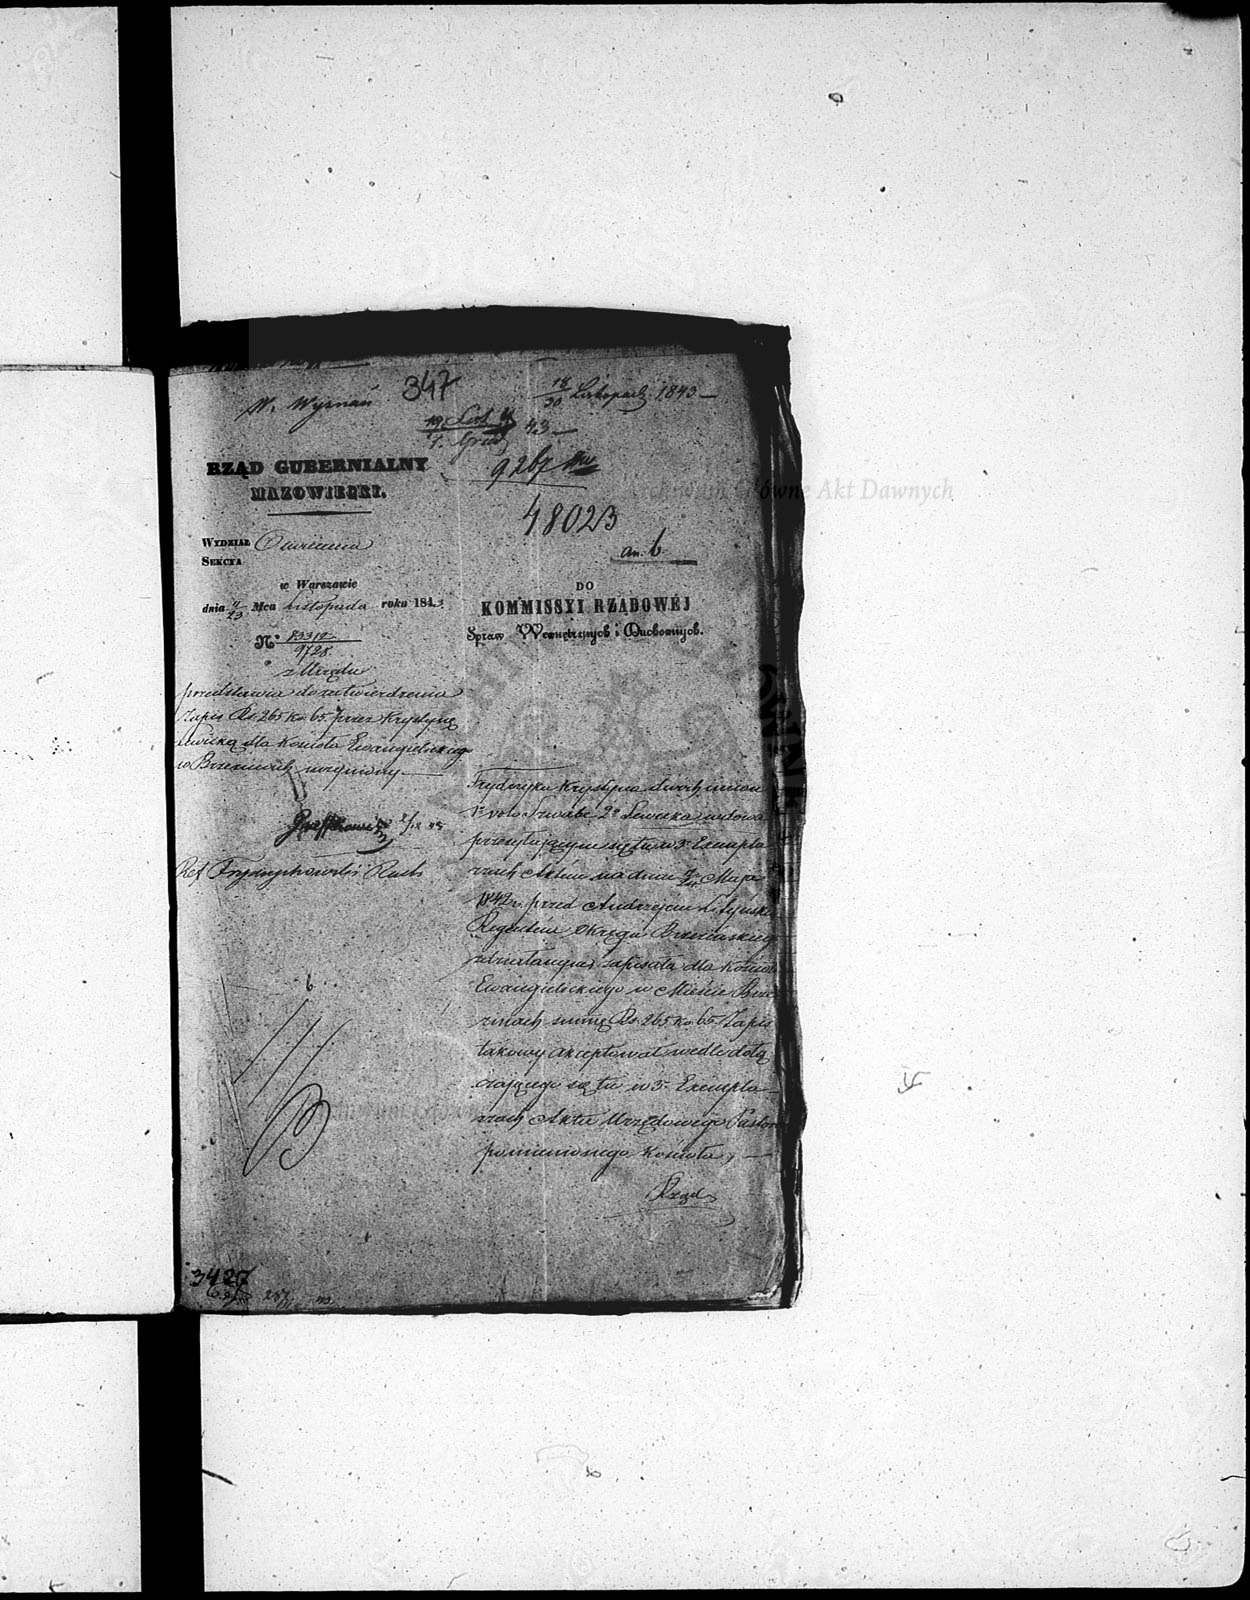 W. Wyznań
347
18/30 Listopada 1843
19 List
1. Grud 43
9267
48023
an. 6
RZĄD GUBERNIALNY
MAZOWIECKI.
WYDZIAŁ
SEKCYA
w Warszawie
dnia 11/23 Mca Listopada roku 1843
N° 83312
9728
z Urzędu
przedstawia do zatwierdzenia
Zapis Rs 265 ko 65 przez Krystynę
Lewicką dla Kościoła Ewangielickiego
w Brzezinach uczyniony
Ref
DO
KOMMISSYI RZĄDOWÉJ
Spraw Wewnętrznych i Duchownych.
Fryderyka Krystyna dwóch imion
1° voto Szwabe 2° Lewicka wdowa
przyłączającym się tu w 3 Exempla
rzach Aktem na dniu Maja
1842 r. przed Andrzejem
Regentem Okręgu Brzezińskiego
zdziałanym, zapisała dla Kościoła
Ewangielickiego w Mieście Brze
zinach summę Rs 265 ko 65 Zapis
takowy akceptował wedle dołą
czającego się tu w 3 Exempla
rzach Aktu Urzędowego Pastor
pomienionego Kościoła,
Rząd
6
3427
Archiwum Główne Akt Dawnych